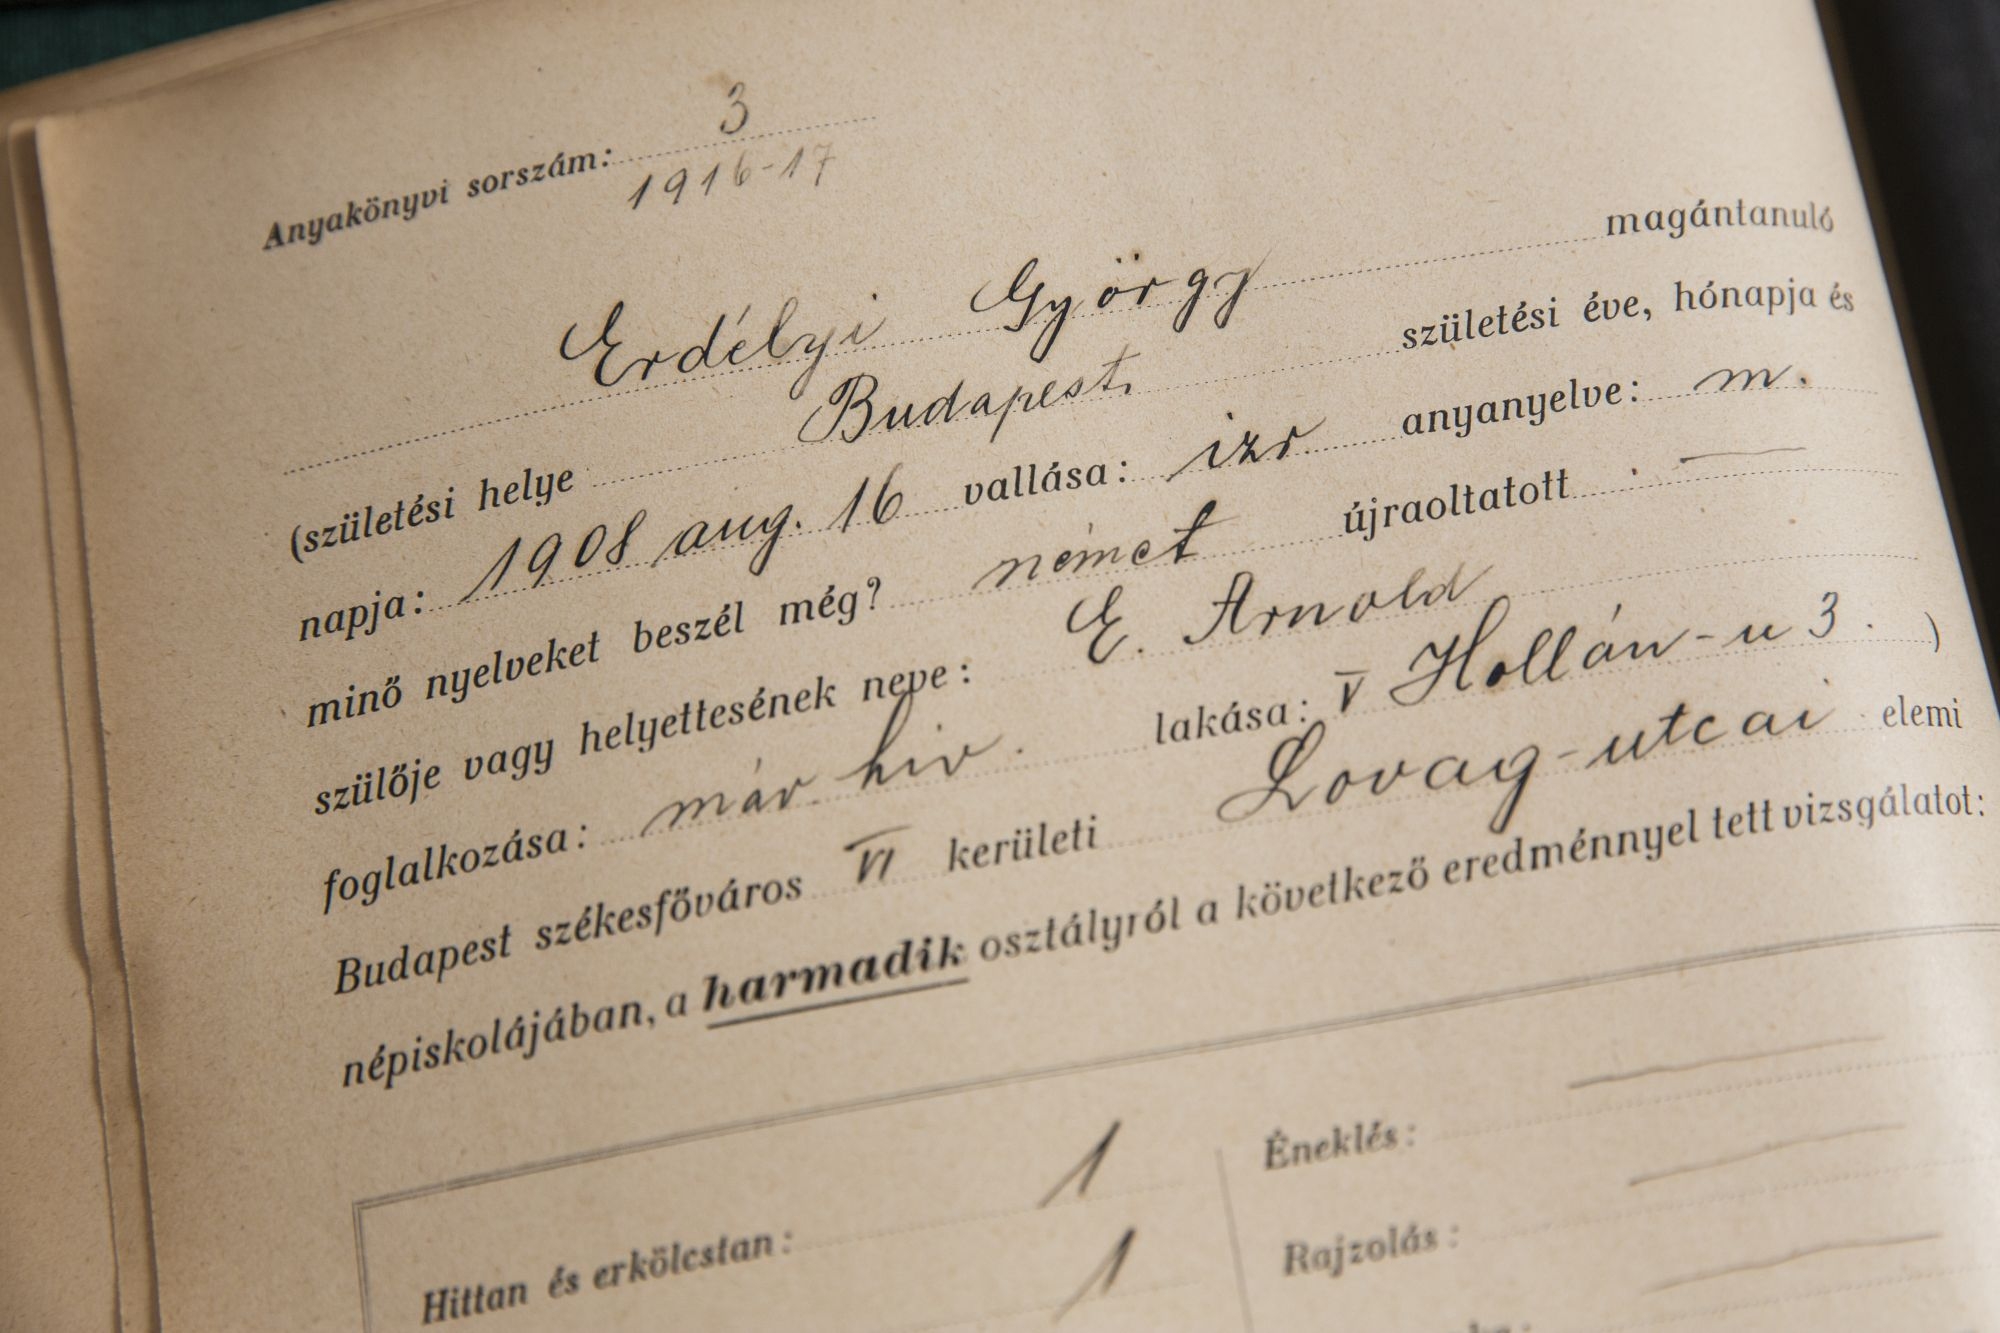 Anyakönyvi sorszám: 3
1916-17
Erdélyi György magántanuló
(születési helye Budapest. születési éve, hónapja és
napja: 1908 aug. 16 vallása: izr anyanyelve: m.
minő nyelveket beszél még? német újraoltatott —
szülője vagy helyettesének neve: E. Arnold
foglalkozása: már hiv. lakása: V Hollán-u 3. )
Budapest székesfőváros VI kerületi Lovag-utcai elemi
népiskolájában, a harmadik osztályról a következő eredménnyel tett vizsgálatot:
Hittan és erkölcstan: 1 Éneklés: —
1 Rajzolás: —